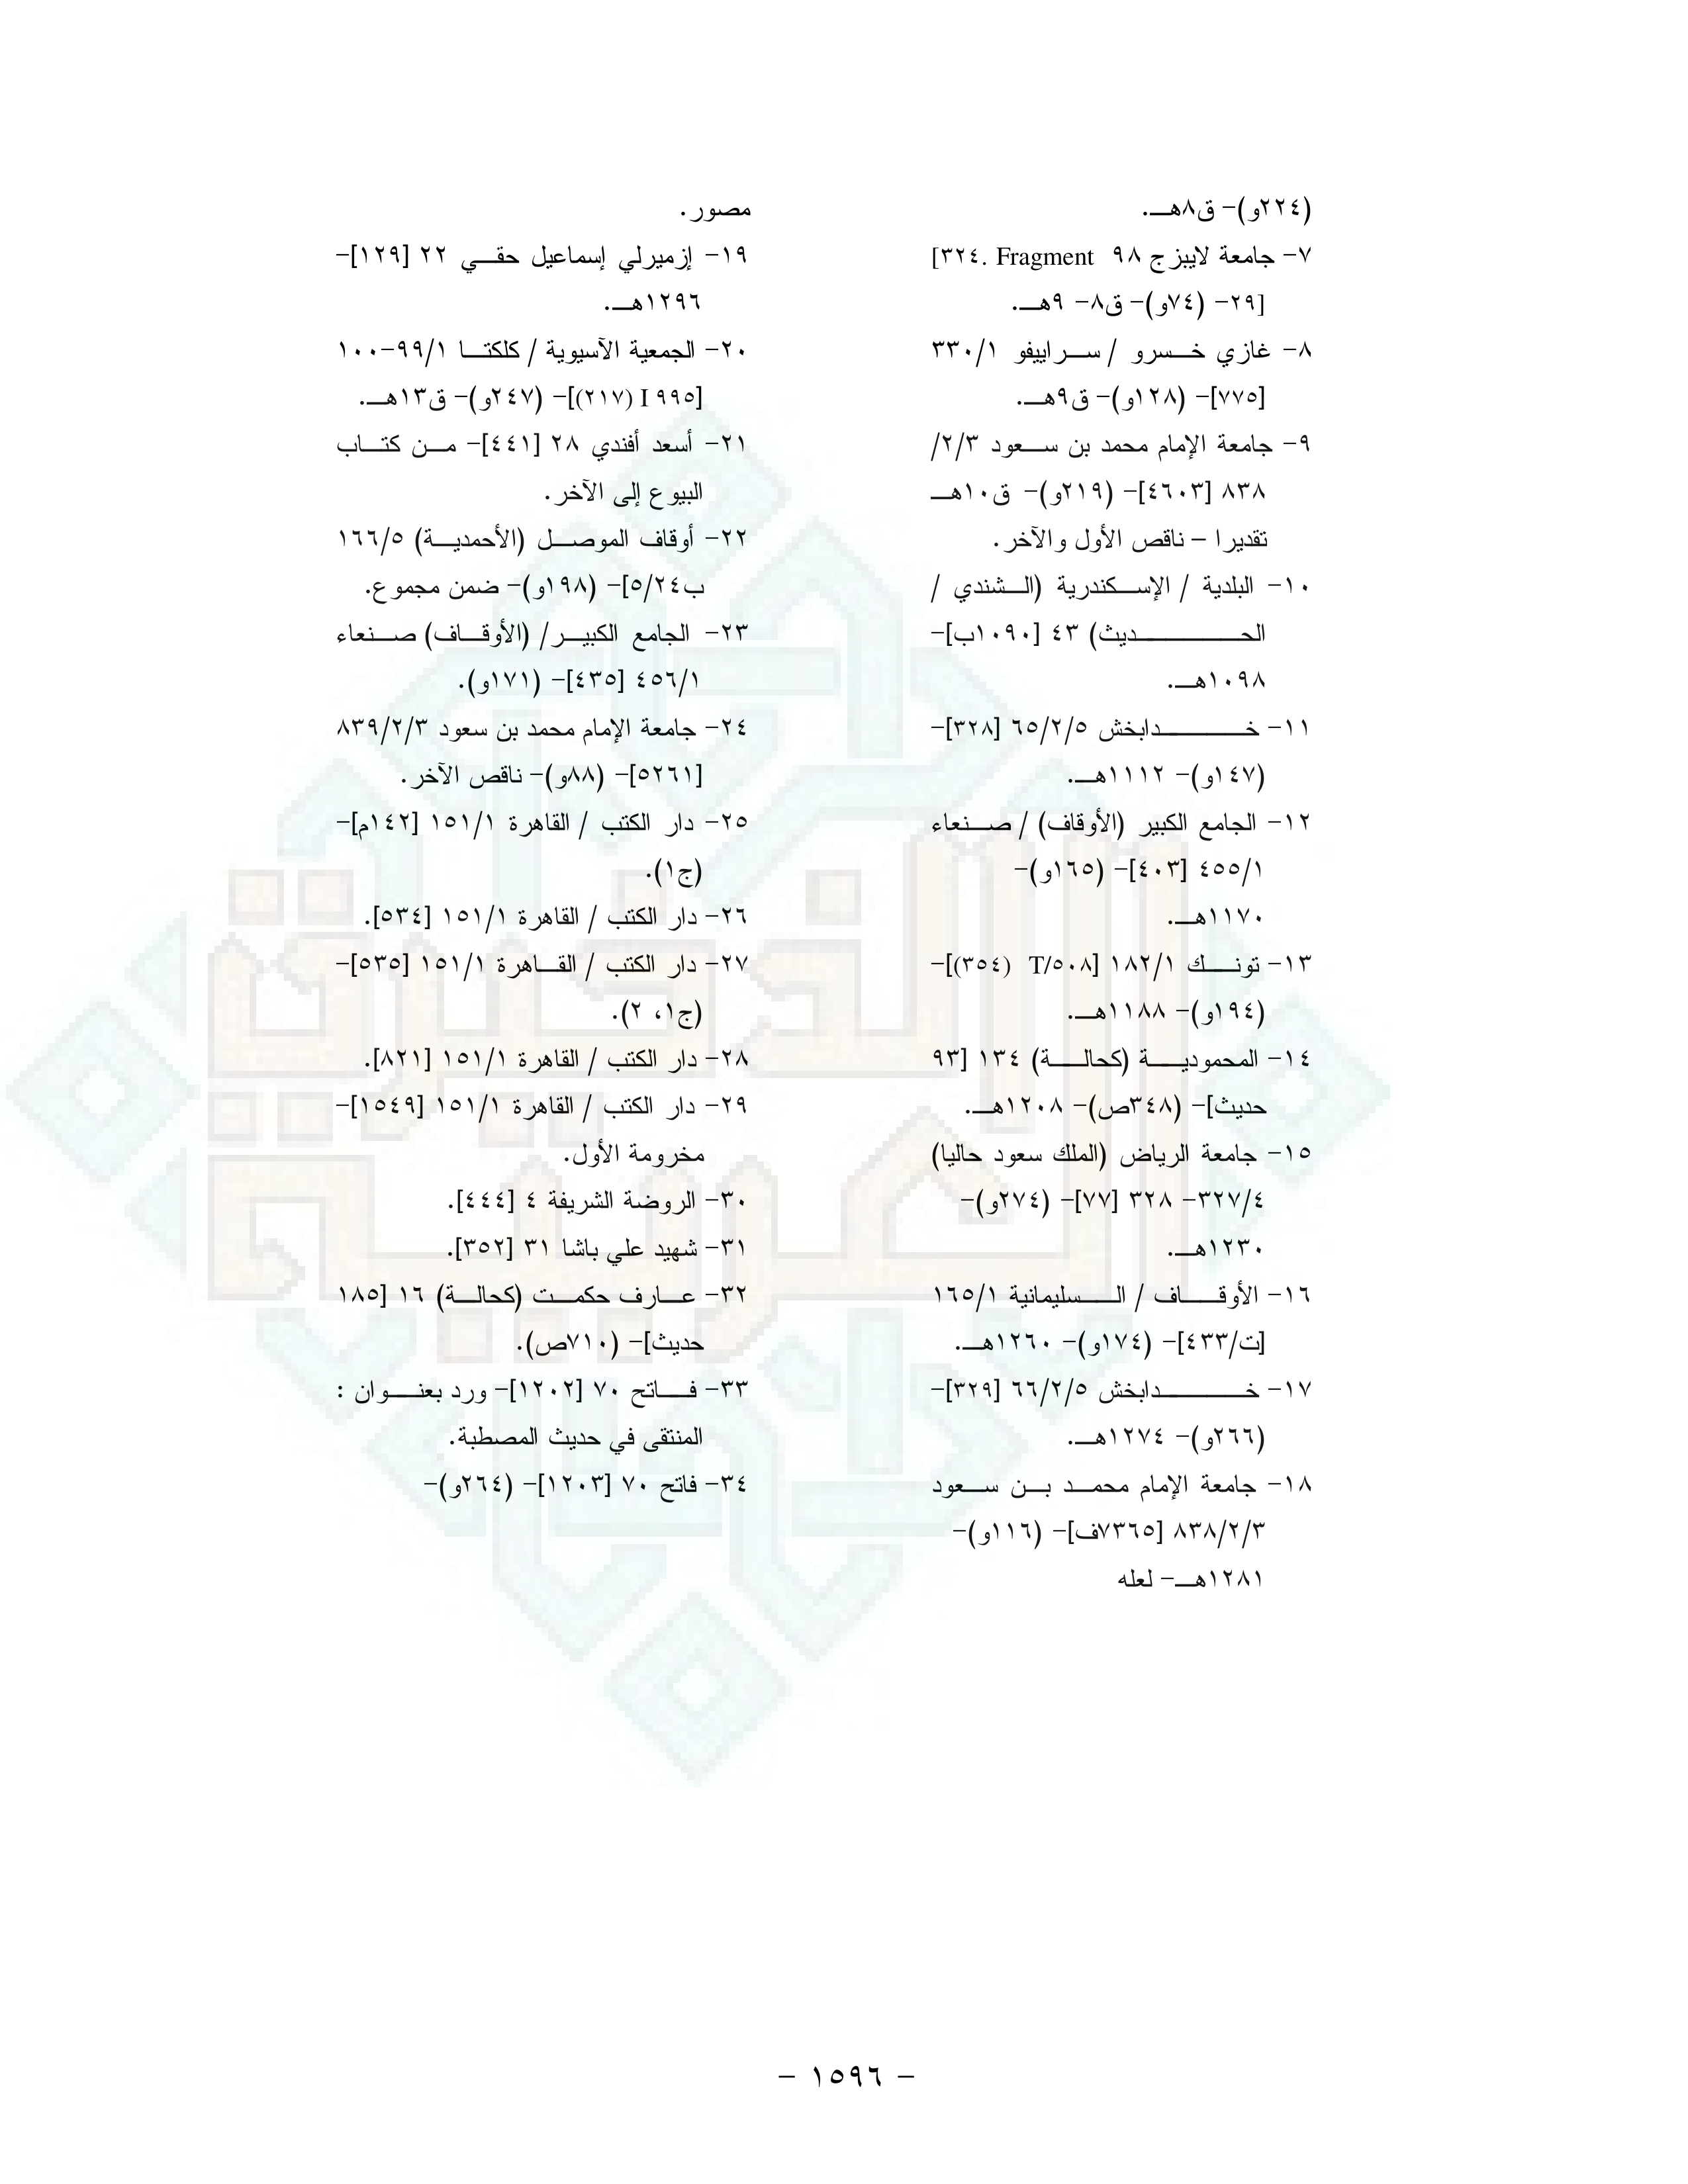 (٢٢٤و)- ق٨هـ.
٧- جامعة لايبزج ٩٨ Fragment .٣٢٤]
[٢٩- (٧٤و)- ق٨- ٩هـ.
٨- غازي خسرو / سراييفو ٣٣٠/١
[٧٧٥]- (١٢٨و)- ق٩هـ.
٩- جامعة الإمام محمد بن سعود ٢/٣/
٨٣٨ [٤٦٠٣]- (٢١٩و)- ق١٠هـ
تقديرا – ناقص الأول والآخر.
١٠- البلدية / الإسكندرية (الشندي /
الحديث) ٤٣ [١٠٩٠ب]-
١٠٩٨هـ.
١١- خدابخش ٦٥/٢/٥ [٣٢٨]-
(١٤٧و)- ١١١٢هـ.
١٢- الجامع الكبير (الأوقاف) / صنعاء
٤٥٥/١ [٤٠٣]- (١٦٥و)-
١١٧٠هـ.
١٣- تونك ١٨٢/١ [T/٥٠٨ (٣٥٤)]-
(١٩٤و)- ١١٨٨هـ.
١٤- المحمودية (كحالة) ١٣٤ [٩٣
حديث]- (٣٤٨ص)- ١٢٠٨هـ.
١٥- جامعة الرياض (الملك سعود حاليا)
٣٢٧/٤- ٣٢٨ [٧٧]- (٢٧٤و)-
١٢٣٠هـ.
١٦- الأوقاف / السليمانية ١٦٥/١
[ت/٤٣٣]- (١٧٤و)- ١٢٦٠هـ.
١٧- خدابخش ٦٦/٢/٥ [٣٢٩]-
(٢٦٦و)- ١٢٧٤هـ.
١٨- جامعة الإمام محمد بن سعود
٨٣٨/٢/٣ [٧٣٦٥ف]- (١١٦و)-
١٢٨١هـ- لعله
مصور.
١٩- إزميرلي إسماعيل حقي ٢٢ [١٢٩]-
١٢٩٦هـ.
٢٠- الجمعية الآسيوية / كلكتا ٩٩/١-١٠٠
[٩٩٥ I (٢١٧)]- (٢٤٧و)- ق١٣هـ.
٢١- أسعد أفندي ٢٨ [٤٤١]- من كتاب
البيوع إلى الآخر.
٢٢- أوقاف الموصل (الأحمدية) ١٦٦/٥
ب٥/٢٤]- (١٩٨و)- ضمن مجموع.
٢٣- الجامع الكبير/ (الأوقاف) صنعاء
٤٥٦/١ [٤٣٥]- (١٧١و).
٢٤- جامعة الإمام محمد بن سعود ٨٣٩/٢/٣
[٥٢٦١]- (٨٨و)- ناقص الآخر.
٢٥- دار الكتب / القاهرة ١٥١/١ [١٤٢م]-
(ج١).
٢٦- دار الكتب / القاهرة ١٥١/١ [٥٣٤].
٢٧- دار الكتب / القاهرة ١٥١/١ [٥٣٥]-
(ج١، ٢).
٢٨- دار الكتب / القاهرة ١٥١/١ [٨٢١].
٢٩- دار الكتب / القاهرة ١٥١/١ [١٥٤٩]-
مخرومة الأول.
٣٠- الروضة الشريفة ٤ [٤٤٤].
٣١- شهيد علي باشا ٣١ [٣٥٢].
٣٢- عارف حكمت (كحالة) ١٦ [١٨٥
حديث]- (٧١٠ص).
٣٣- فاتح ٧٠ [١٢٠٢]- ورد بعنوان :
المنتقى في حديث المصطبة.
٣٤- فاتح ٧٠ [١٢٠٣]- (٢٦٤و)-
- ١٥٩٦ -